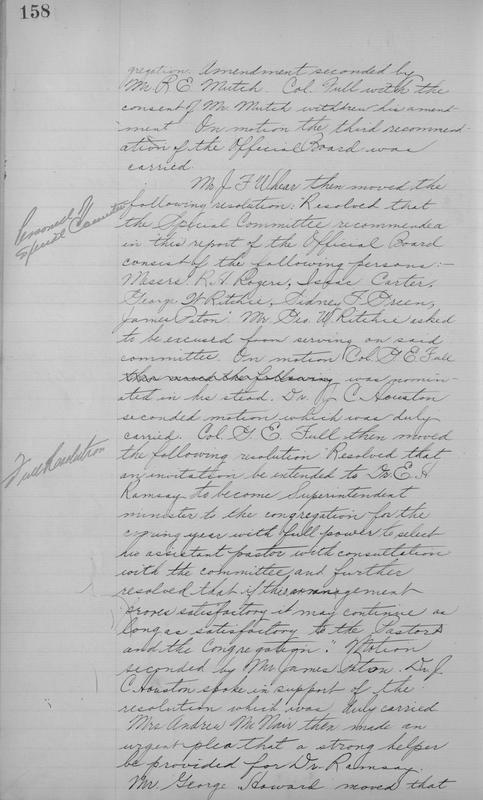 158
gregation. Amendment seconded by
Mr. R. E. Mutch. Col. Full with the
consent of Mr. Mutch withdrew his amend-
ment. On motion the third recommend-
ation of the Official Board was
carried.
Mr J. F. Whear then moved the
following resolution: Resolved that
Personnel of
Special Committee
the Special Committee recommended
in this report of the Official Board
consist of the following persons:-
Messrs. R. H. Rogers, Isaac Carter,
George W Ritchie, Sidney T. Green,
James Paton." Mr. Geo. W. Ritchie asked
to be excused from serving on said
committee. On motion Col. G. E. Full
then moved the following was nomin-
ated in his stead. Dr. J. C. Houston
seconded motion which was duly
carried. Col. G. E. Full then moved
Full Resolution
the following resolution "Resolved that
an invitation be extended to Dr. E. H.
Ramsay to become Superintendent
minister to the congregation for the
coming year with full power to select
his assistant pastor with consultation
with the committee, and further
resolved that if the arrangement
proves satisfactory it may continue as
long as satisfactory to the Pastors
and the Congregation." Motion
seconded by Mr. James Paton. Dr. J.
C. Houston spoke in support of the
resolution which was duly carried
Mrs Andrew McNair then made an
urgent plea that a strong helper
be provided for Dr. Ramsay.
Mr. George Howard moved that